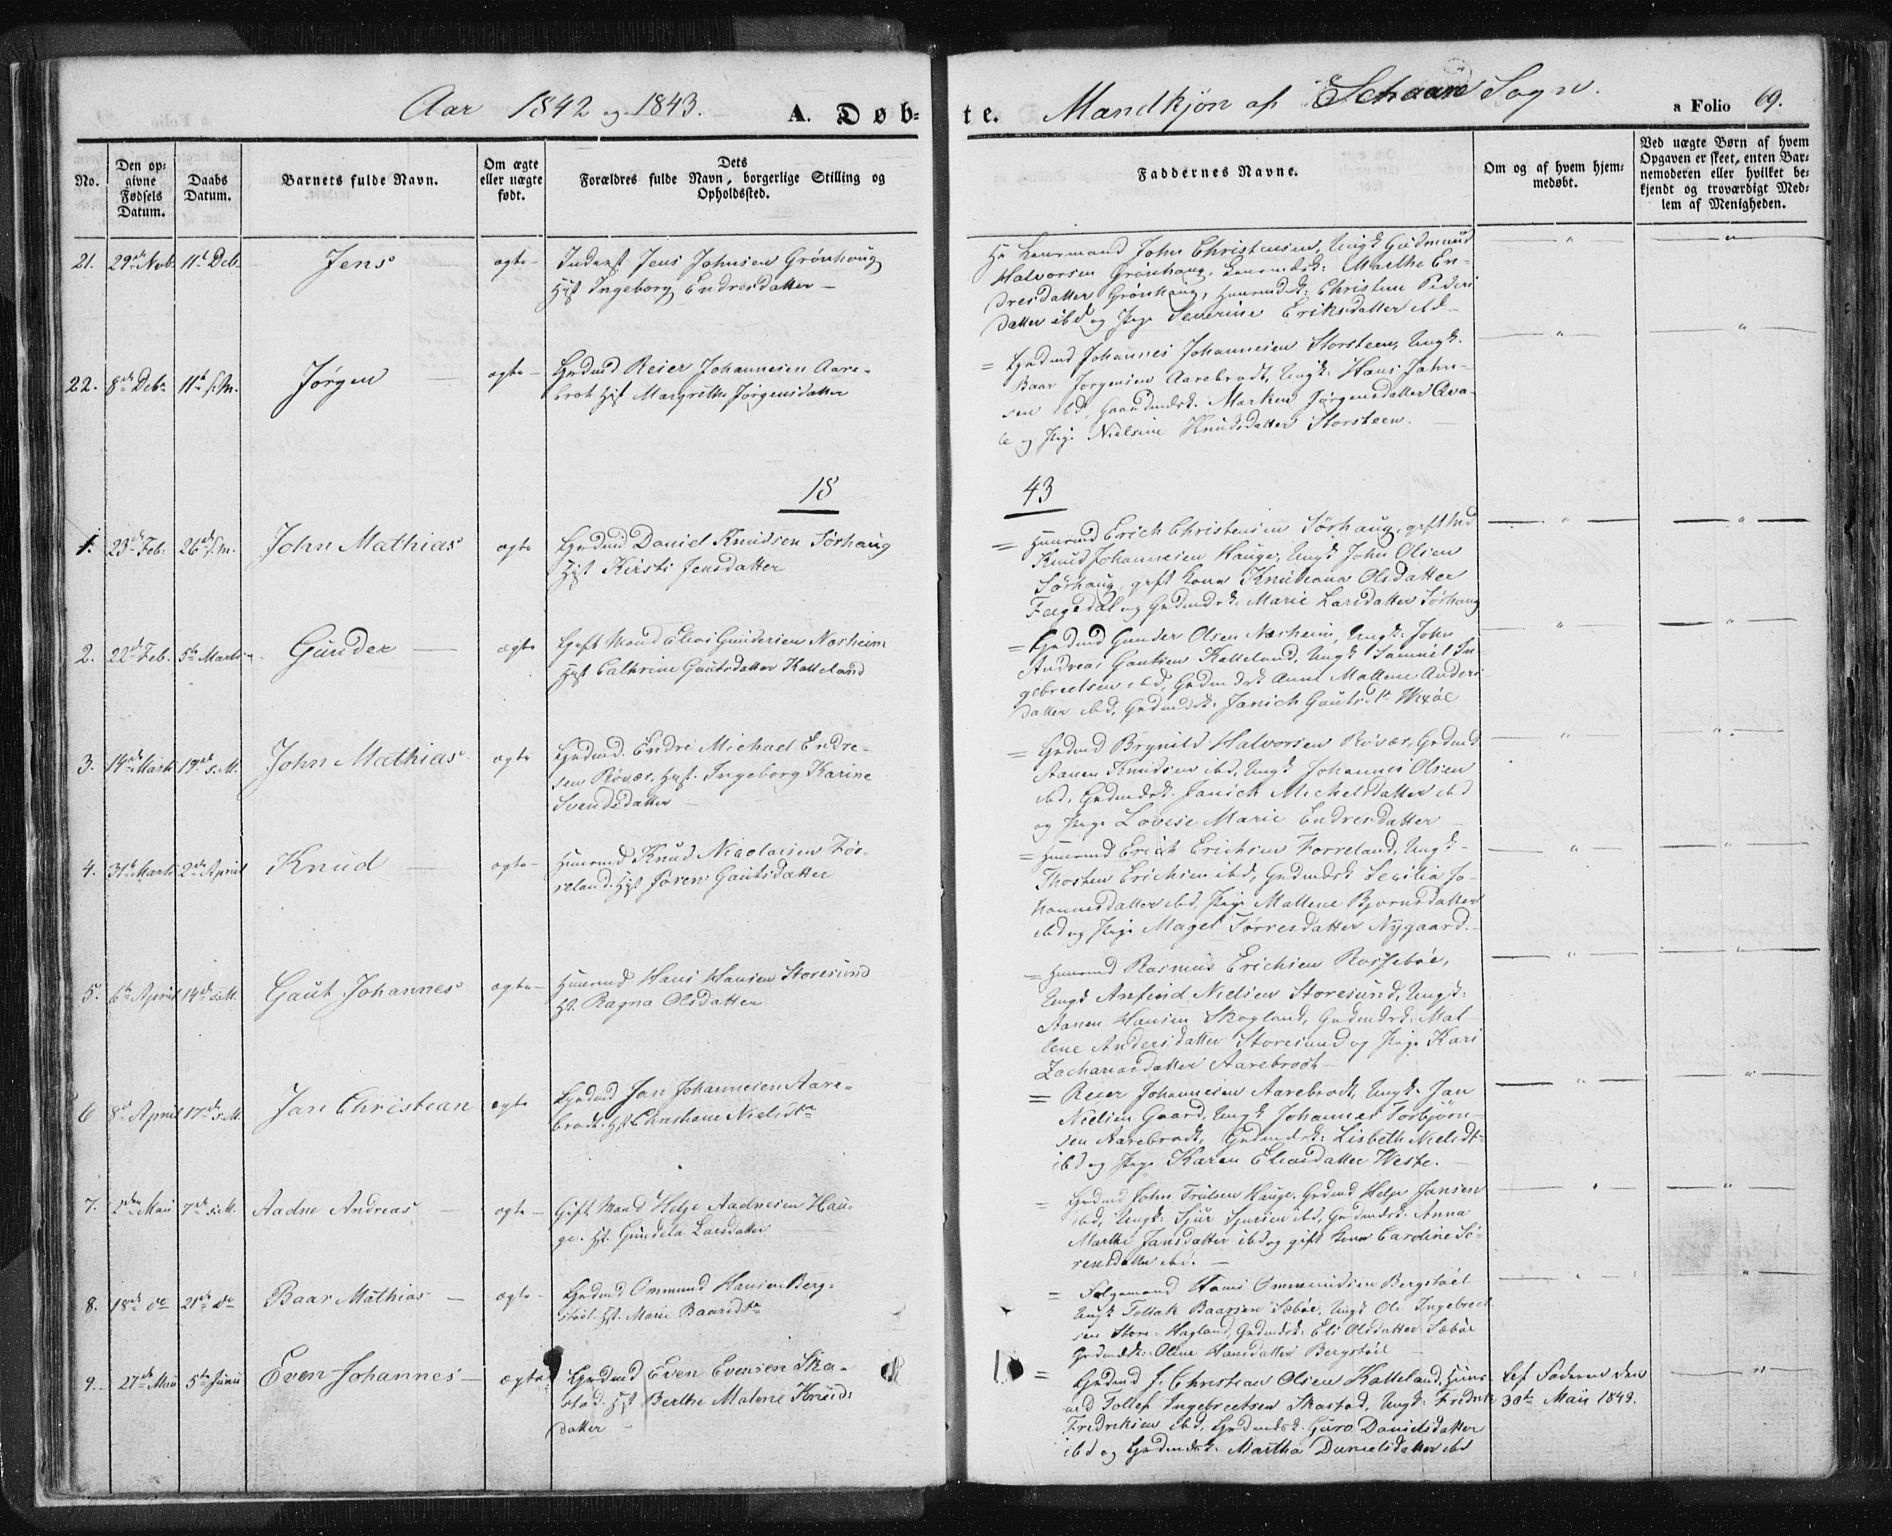 Aar 1842 og 1843. A. Døb-
te. Mandkjøn af Schaare Sogn. a Folio 69.
No.
Den op-
givne
Fødsels
Datum.
Daabs
Datum.
Barnets fulde Navn.
Om ægte
eller uægte
født.
Dets
Forældres fulde Navn, borgerlige Stilling og
Opholdssted.
Faddernes Navne.
Om og af hvem hjem-
medøbt.
Ved uægte Børn af hvem
Opgaven er skeet, enten Bar-
nemoderen eller hvilket be-
kjendt og troværdigt Med-
lem af Menigheden.
21. 29de Nvb. 11te Deb. Jens ægte
Inderst Jens Johnsen Grønhoug
Hst Ingeborg Endresdatter
John Christensen, Ungk Gudmund
Halvorsen Grønhaug, Marthe En-
dresdatter Grønhaug, Christine Peders
datter ibd og Pige Severine Eriksdatter ibd
22. 8de Debr 11te s.M. Jørgen ægte
Grdmd Reier Johannesen Aare-
brot Hst Margrethe Jørgensdatter
= Grdmd Johannes Johannesen Storsteen, Ungk.
Baar Jørgensen Aarebrodt, Ungk. Hans John-
sen ibd, Gaardmdsk. Marken Jørgensdatter Qva-
le og Pige Nielsine Knudsdatter Storsteen.
18
43
1. 23de Feb. 26de s.M. John Mathias ægte
Grdmd Daniel Knudsen Sørhaug
Hst Kirsti Jensdatter
= Huusmd Erich Christensen Sørhaug, gift Md
Knud Johannesen Hauge, Ungk John Olsen
Sørhaug, gift Kone Knudiana Olsdatter
Fagedal og Grdmdsk: Marie Larsdatter Sørhaug
2. 22de Feb. 5te Marts Gunder ægte
Gift Mand Elias Gundersen Nesheim
Hst Cathrine Gautsdatter Katteland
= Grdmd Gunder Olsen Næsheim, Ungk: John
Andreas Gautsen Katteland, Ungk Samuel In-
gebretsen ibd, Grdmdsk Anne Mallene Anders
datter ibd, Grdmdsk. Janich Gautsdt Wexøe
3. 14de Marts 19de s.M. John Mathias ægte
Grdmd. Endre Michael Endre-
sen Røvær, Hst. Ingeborg Karine
Svendsdatter
= Grdmd Brynild Halvorsen Røvær, Grdmd
Aanen Knudsen ibd, Ungk Johannes Olsen
ibd, Grdmdsk. Janich Michelsdatter ibd
og Pige Lovise Marie Endresdatter
4. 31te Marts 2den April Knud ægte
Huusmd Knud Nicolaisen Før-
reland. Hst Søren Gautsdatter
= Huusmd Erich Erichsen Førreland, Ungk
Thosten Erichsen ibd, Grdmdsk Secilia Jo-
hannesdatter ibd, Pige Mallene Bjørnsdatter
ibd og Pige Magel Tørresdatter Nygaard.
5. 6te April 14de s.M. Gaut Johannes ægte
Huusmd Hans Hansen Storesund
Hst. Ragna Olsdatter
= Huusmd Rasmus Erichsen Rossebøe,
Ungk Anfind Nielsen Storesund, Ungk:
Aanen Hansen Skogland, Grdmdsk: Mal-
lene Andersdatter Storesund og Pige Kari
Zachariasdatter Aarebrodt
6 8de April 17de s.M. Jan Christian ægte
Grdmd Jan Johannesen Aare-
brodt. Hst Christiane Nielsdtr
= Reier Johannesen Aarebrodt, Ungk. Jan
Nielsen Gaard, Ungk Johannes Torbjørn-
sen Aarebrodt, Grdmdsk: Lisbeth Nielsdt-
ibd og Pige Karen Eliasdatter Weste.
7. 2den Mai 7de s.M. Aadne Andreas ægte
Gift Mand Helje Aadnesen Hau-
ge. Hst. Gundela Larsdatter
= Grdmd John Trulsen Hauge, Grdmd Helge Jansen
ibd, Ungk. Sjur Sjursen ibd, Grdmdsk: Anna
Marthe Jansdatter ibd og gift Kone Caroline Sø-
rensdatter ibd.
8. 18de do 21de do Baar Mathias ægte
Grdmd Ommund Hansen Berg-
støel. Hst. Marie Baarsdtr
= Følgemand Hans Ommundsen Bergstøel
Ungk Tollak Baarsen Sæbøe, Ungk Ole Ingebret-
sen Store-Hagland, Grdmdsk: Eli Olsdatter Sæbøe
Grdmdsk: Oline Hansdatter Bergstøel
9. 27de Mai 5te Junii Even Johannes ægte
Grdmd Even Evensen Ska-
stad. Hst Berthe Malene Knuds-
datter
= Grdmd J. Christian Olsen Katteland, Huus-
md Tollef Ingebretsen Skastad, Ungk: Fredrik
Fredriksen ibd, Grdmdsk. Guro Danielsdatter
ibd og Grdmdsk: Martha Danielsdatter ibd
af Faderen den
30te Maii 1843.